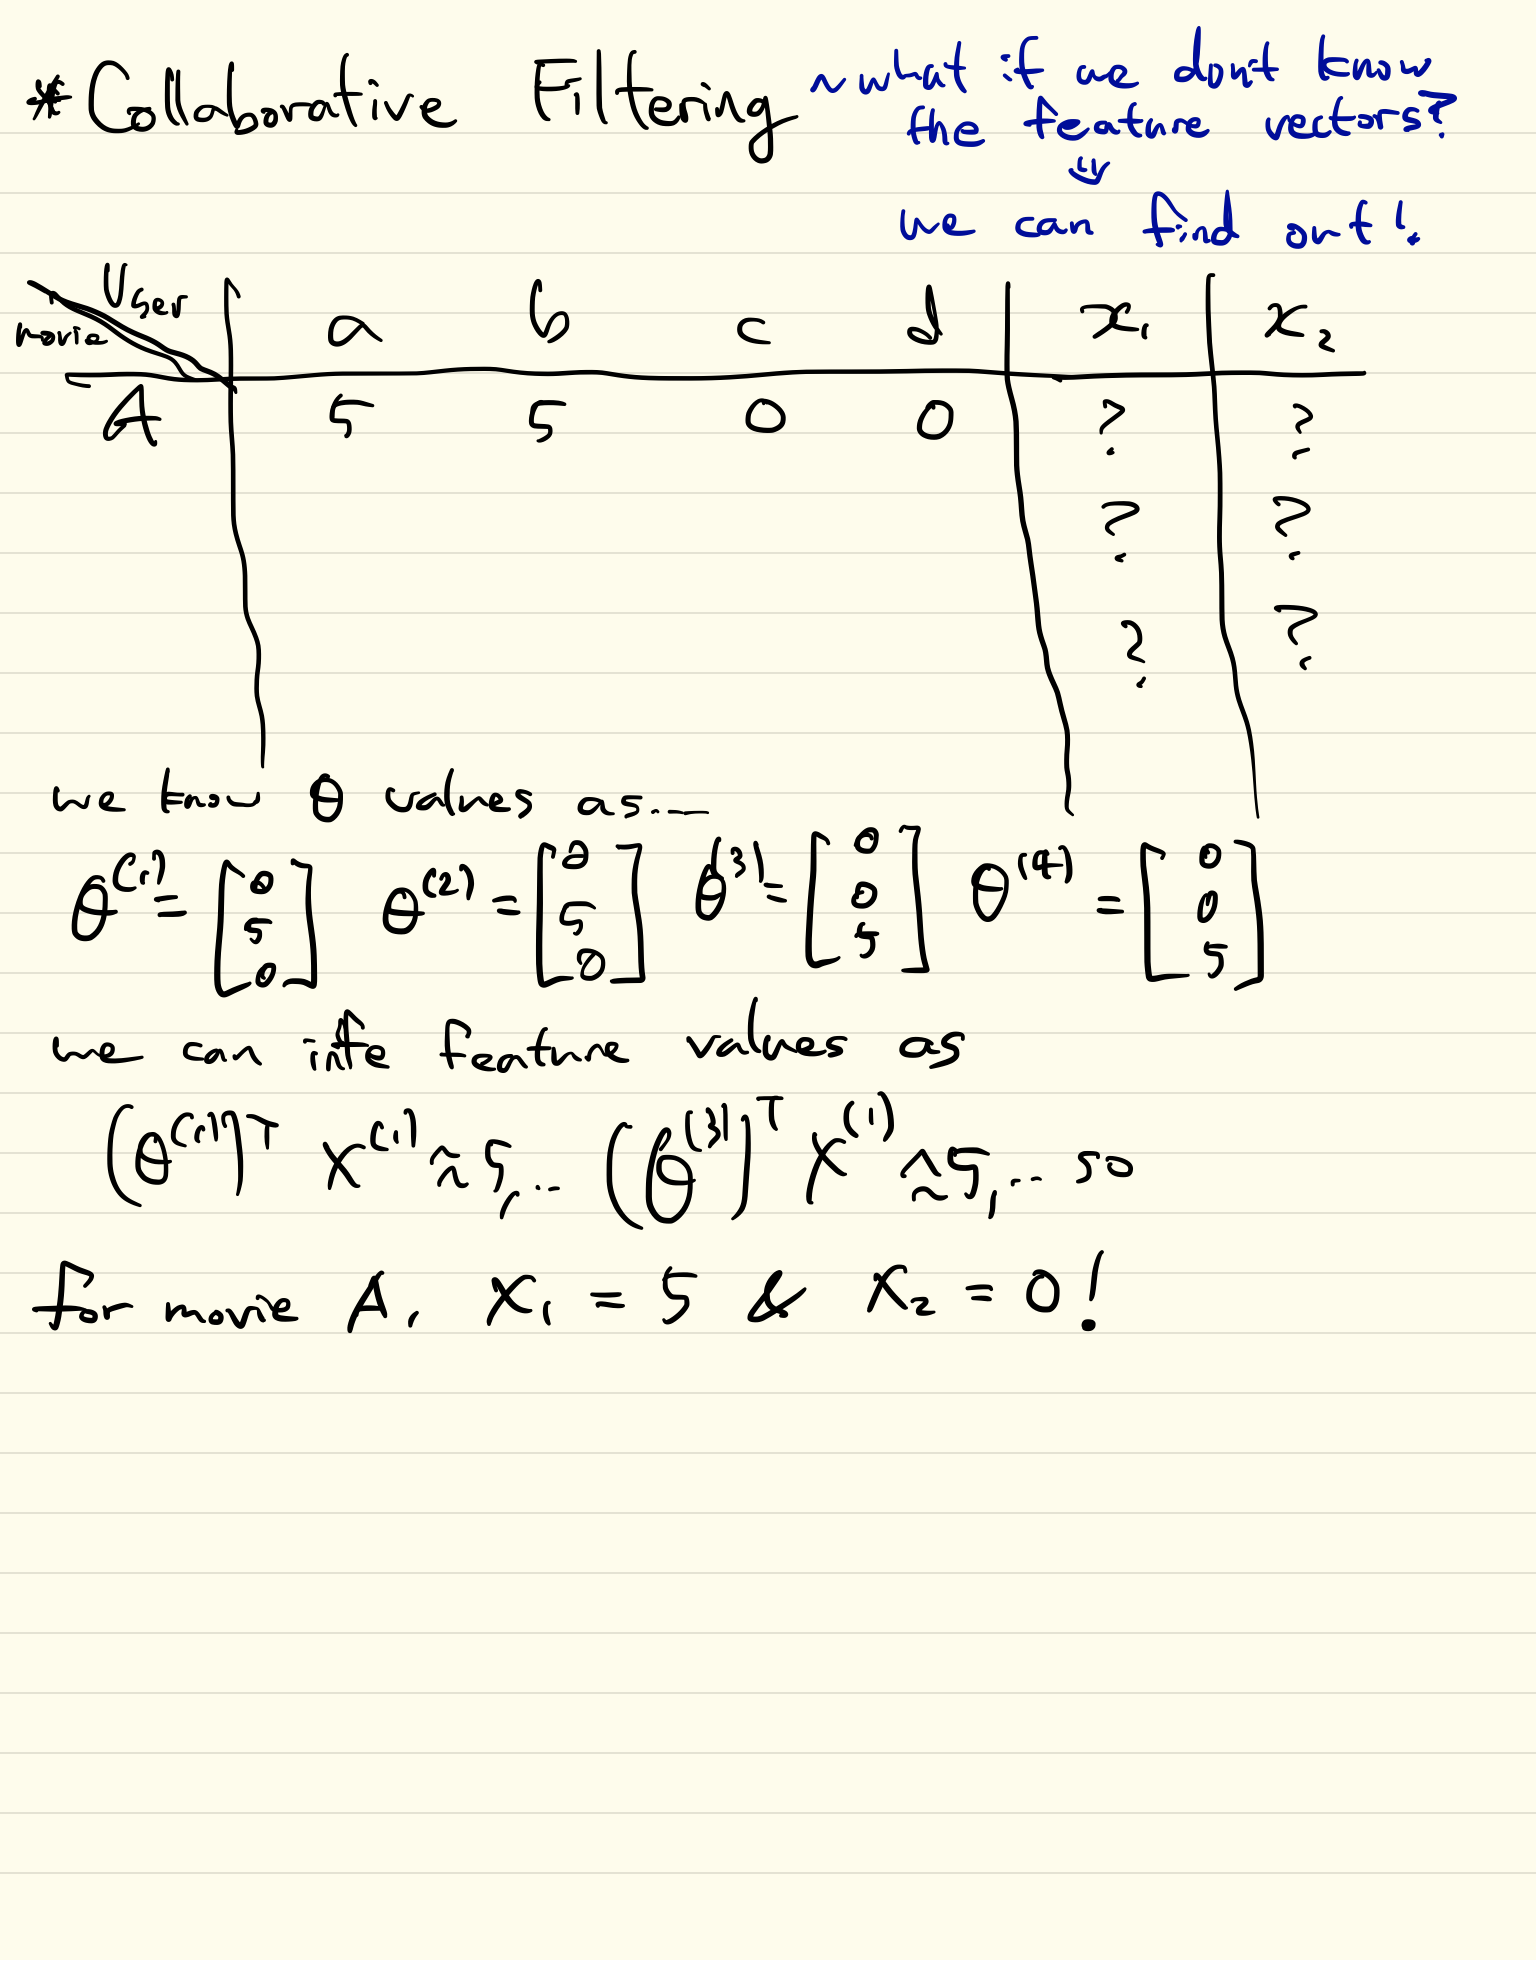 * Collaborative Filtering
~what if we don't know
the feature vectors?
⇓
we can find out!
User a b c d x₁ x₂
movie
A 5 5 0 0 ? ?
? ?
? ?
we know θ values as...
θ⁽¹⁾ = [0 5 0] θ⁽²⁾ = [0 5 0] θ⁽³⁾ = [0 0 5] θ⁽⁴⁾ = [0 0 5]
we can infe feature values as
(θ⁽¹⁾)ᵀ x⁽¹⁾ ≈ 5, ... (θ⁽³⁾)ᵀ x⁽¹⁾ ≈ 5, ... so
for movie A, x₁ = 5 & x₂ = 0!